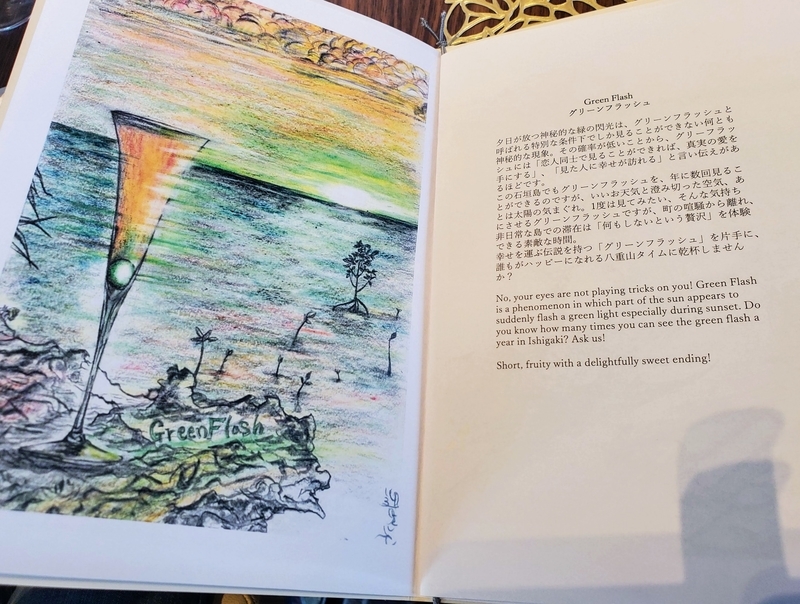 GreenFlash
Green Flash
グリーンフラッシュ
夕日が放つ神秘的な緑の閃光は、グリーンフラッシュと
呼ばれる特別な条件下でしか見ることができない何とも
神秘的な現象。その確率が低いことから、グリーフラッ
シュには「恋人同士で見ることができれば、真実の愛を
手にする」、「見た人に幸せが訪れる」と言い伝えがあ
るほどです。
この石垣島でもグリーンフラッシュを、年に数回見るこ
とができるのですが、いいお天気と澄み切った空気、あ
とは太陽の気まぐれ。1度は見てみたい、そんな気持ち
にさせるグリーンフラッシュですが、町の喧騒から離れ、
非日常な島での滞在は「何もしないという贅沢」を体験
できる素敵な時間。
幸せを運ぶ伝説を持つ「グリーンフラッシュ」を片手に、
誰もがハッピーになれる八重山タイムに乾杯しません
か?
No, your eyes are not playing tricks on you! Green Flash
is a phenomenon in which part of the sun appears to
suddenly flash a green light especially during sunset. Do
you know how many times you can see the green flash a
year in Ishigaki? Ask us!
Short, fruity with a delightfully sweet ending!